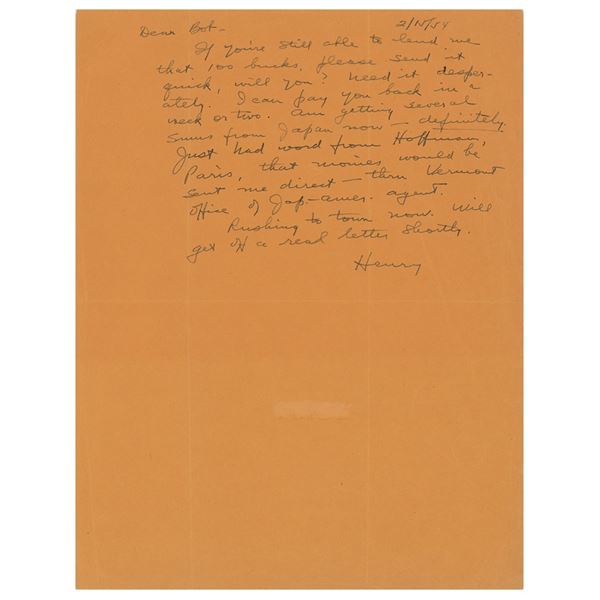 Dear Bob – 2/15/54
If you're still able to lend me
that 100 bucks, please send it
quick, will you? Need it desper-
ately. I can pay you back in a
week or two. Am getting several
sums from Japan now – definitely.
Just had word from Hoffman,
Paris, that monies would be
sent me direct – thru Vermont
office of Jap-amer. agent.
Rushing to town now. Will
get off a real letter shortly.
Henry